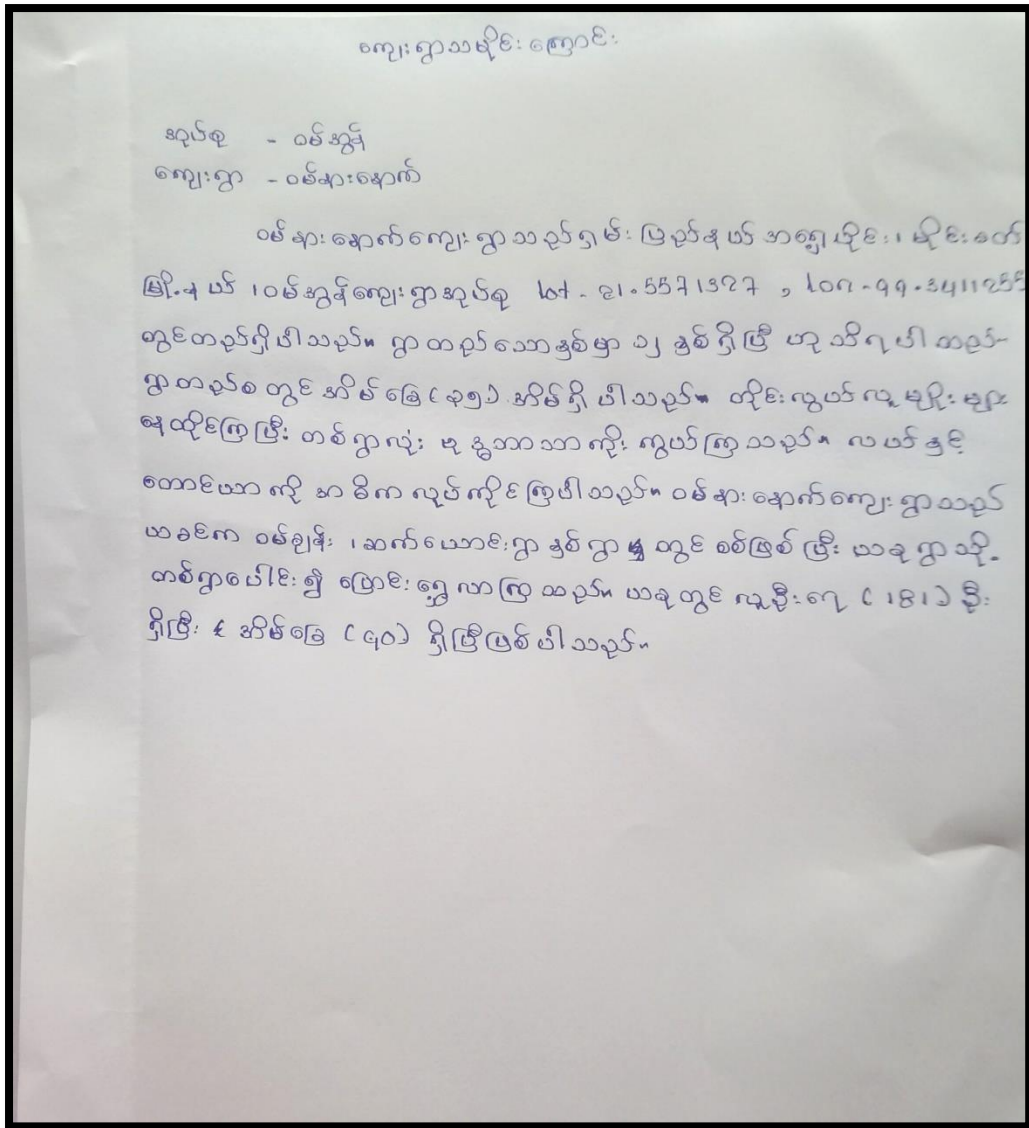 ကျေးရွာသမိုင်းကြောင်း
အုပ်စု - ဝမ်အွန်
ကျေးရွာ - ဝမ်နားနောက်
ဝမ်နားနောက်ကျေးရွာသည်ရှမ်းပြည်နယ်အရှေ့ပိုင်း၊ မိုင်းခတ်
မြို့နယ် ၊ဝမ်အွန်ကျေးရွာအုပ်စု lat - 21.5571327 , lon - 99.3411255
တွင်တည်ရှိပါသည်။ ရွာတည်သောနှစ်မှာ ၁၂ နှစ်ရှိပြီ ဟုသိရပါသည်
ရွာတည်စတွင်အိမ်ခြေ(၃၅) အိမ်ရှိပါသည်။ တိုင်းလွယ်လူမျိုးများ
နေထိုင်ကြပြီး တစ်ရွာလုံး ဗုဒ္ဓဘာသာကိုးကွယ်ကြသည်။ လယ်နှင့်
တောင်ယာကို အဓိကလုပ်ကိုင်ကြပါသည်။ ဝမ်နားနောက်ကျေးရွာသည်
ယခင်က ဝမ်ချန်း ၊ဆက်ယောင်းရွာ နှစ်ရွာ တွင် စစ်ဖြစ်ပြီး ယခုရွာသို့
တစ်ရွာပေါင်း၍ ပြောင်းရွှေ့လာကြသည်။ ယခုတွင်လူဦးရေ (181) ဦး
ရှိပြီး အိမ်ခြေ (၄၀) ရှိပြီဖြစ်ပါသည်။